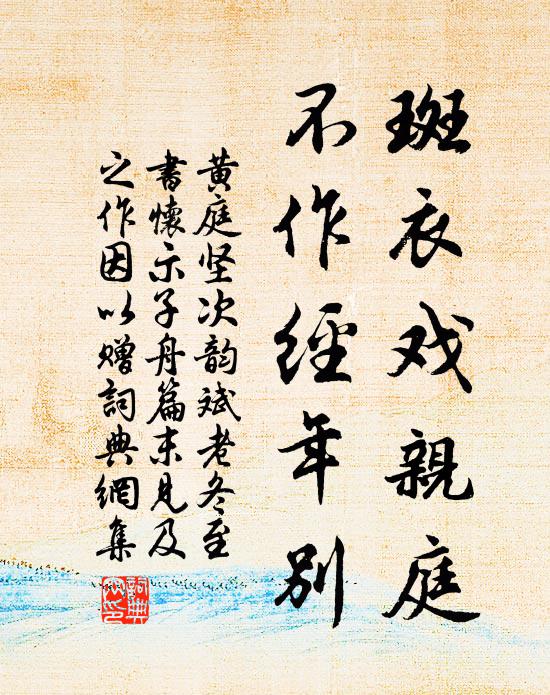 斑衣戏親庭
不作經年别
黄庭坚次韵斌老冬至
書懷示子舟篇末見及
之作因以赠詞典網集